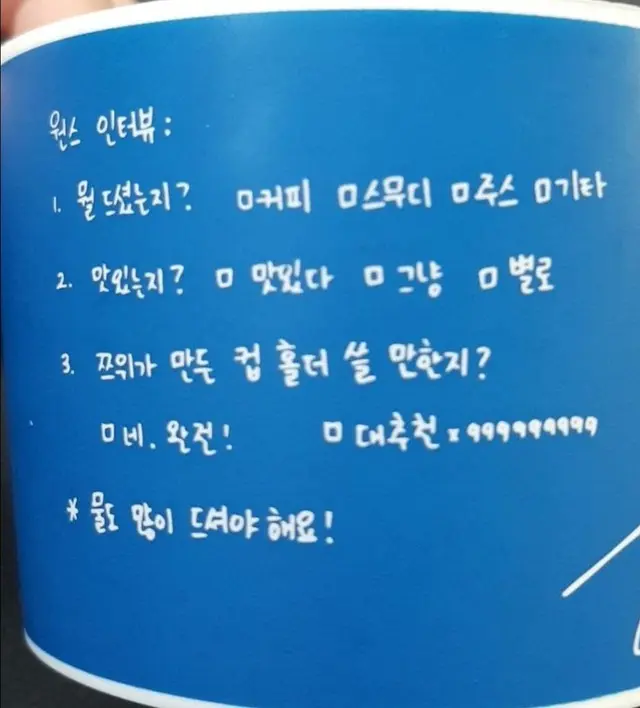 원스 인터뷰:
1. 뭘 드셨는지? □커피 □스무디 □주스 □기타
2. 맛있는지? □ 맛있다 □ 그냥 □ 별로
3. 쯔위가 만든 컵 홀더 쓸 만한지?
□네. 완전! □대추천 x 999999999
* 물도 많이 드셔야 해요!